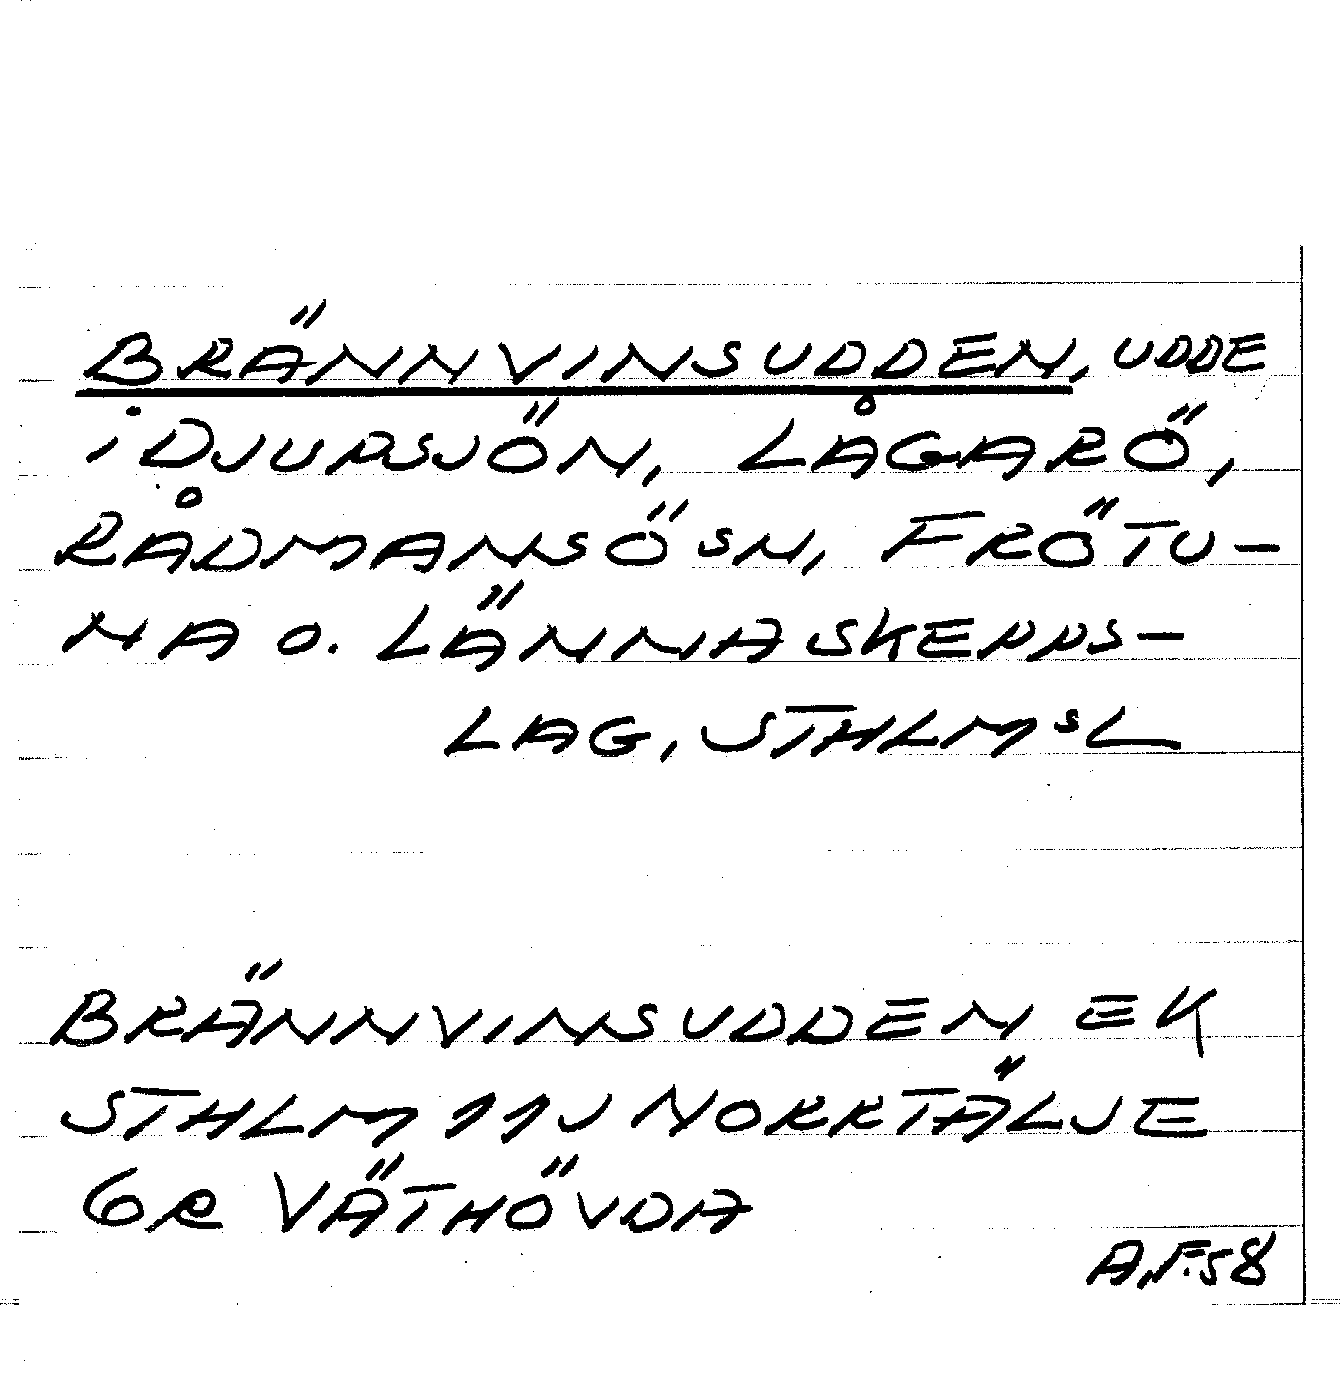 BRÄNNVINSUDDEN, UDDE
i DJUPSJÖN, LÅGARÖ,
RÅDMANSÖ SN, FRÖTU-
NA O. LÄNNA SKEPPS-
LAG, STHLMSL
BRÄNNVINSUDDEN EK
STHLM 11J NORRTÄLJE
6R VÄTHÖVDA
A.F. 58